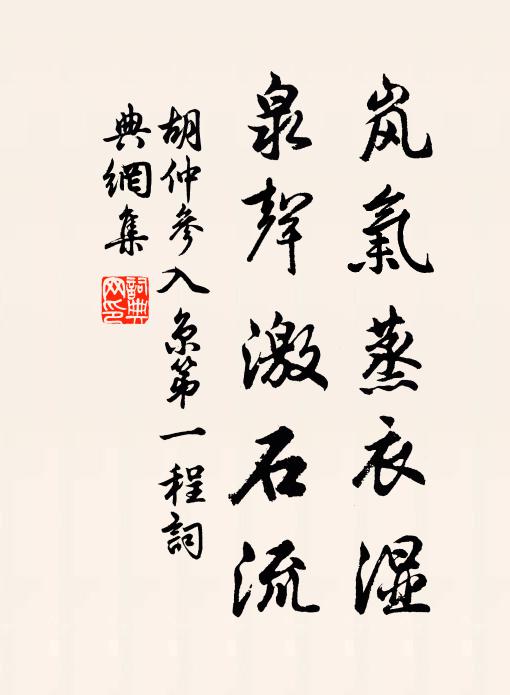 岚氣蒸衣湿
泉聲激石流
胡仲參入京第一程詞
典網集
詞典网印